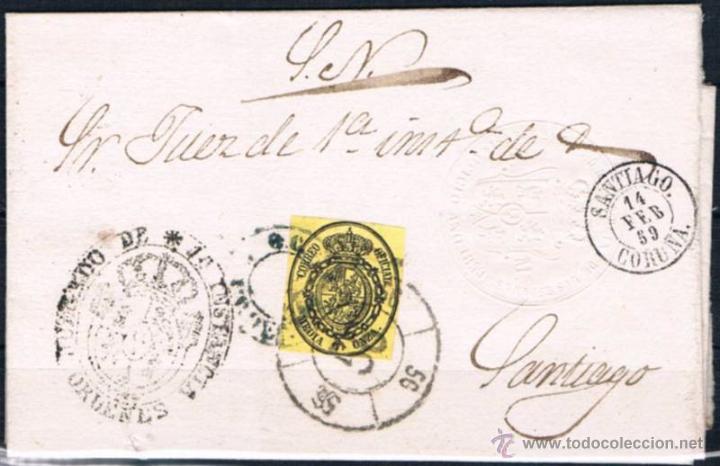 S. N.
Sr. Juez de 1ª inst.ª de
SANTIAGO.
14
FEB
59
CORUÑA.
JUZGADO DE * 1ª INSTANCIA
ORDENES
CORREO OFICIAL
MEDIA ONZA
56
56
Santiago
© todocoleccion.net
www.todocoleccion.net